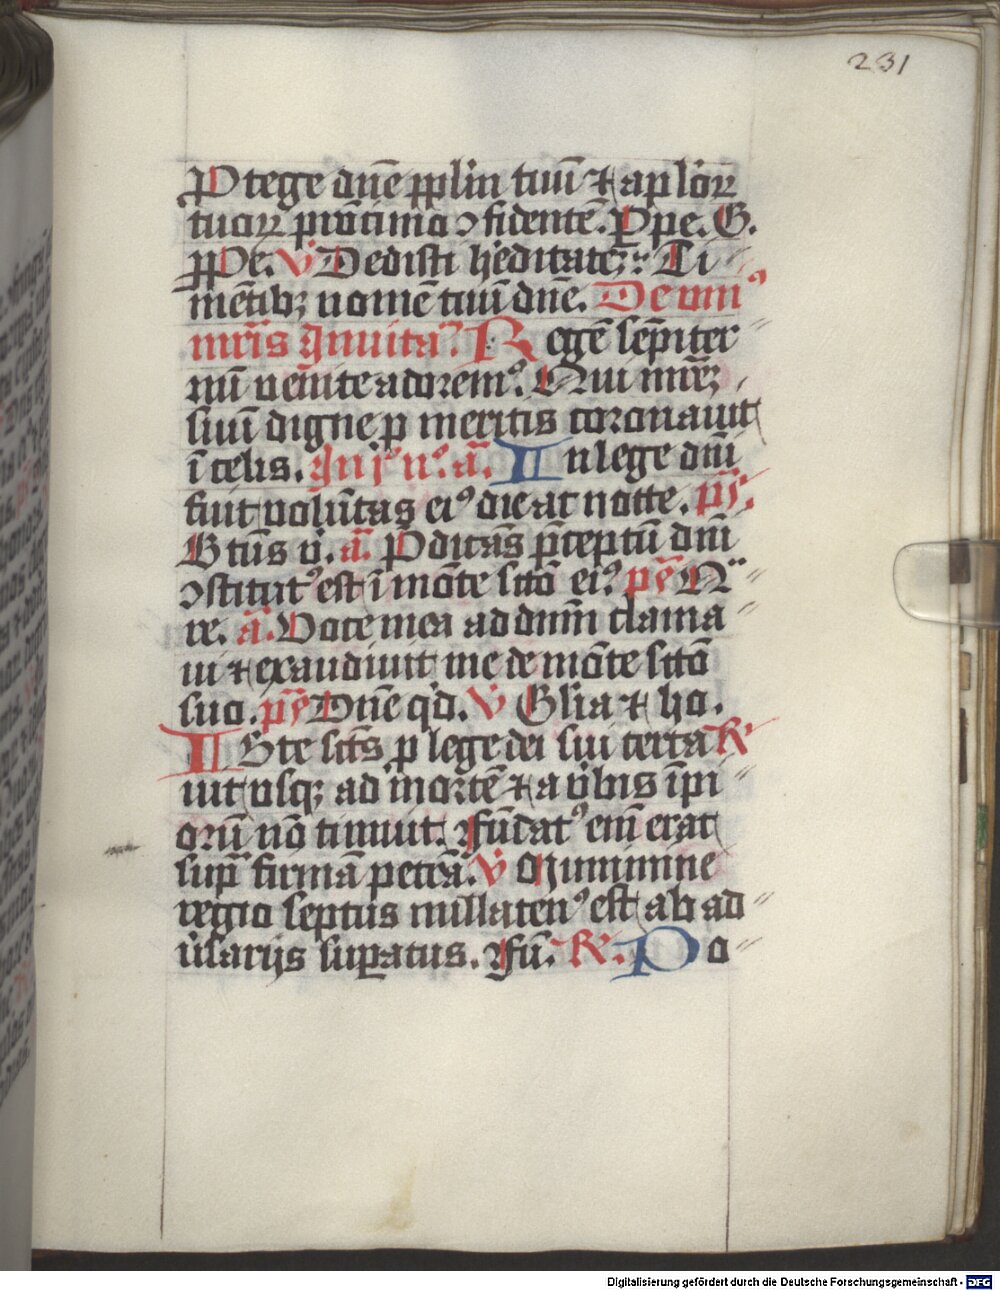 231
Ptege dn̄e pplm̄ tuū ⁊ aplor̄ꝝ
tuoꝝ pr̄ocinio ↄfidentē. Ppe. G.
ppe. V̓ Dedisti hēditatē: Ti
mētibꝫ nomē tuū dn̄e. De uniꝰ
mr̄is Inuitaᷣ. Regē sēpiter
nū venite adoremꝰ. Qui mr̄eꝫ
suū digne p meritis coronauit
ī celis. In jꝰ nᵒ. ā. In lege dn̄i
fuit volūtas eiꝰ die ac nocte. ps̄.
Btūs v̓. ā. Pdicās p̄ceptū dn̄i
ↄstitutꝰ est ī mōte scō eiꝰ. ps̄ Q̄
re. ā. Voce mea ad dnm̄ clama
ui ⁊ exaudiuit me de mōte scō
suo. ps̄ Dn̄e qd̓. V̓ Glia ⁊ ho.
ISte sct̄s p lege dei sui certa R̓
uit vsqꝫ ad mortē ⁊ a v̓bis īpi
orū nō timuit. Fūdatꝰ em̄ erat
sup̄ firmā petrā. V̓ Munimine
regio septus nullatenꝰ est ab ad
v̓sarijs supatus. Fū. R̓. Po
Digitalisierung gefördert durch die Deutsche Forschungsgemeinschaft - DFG